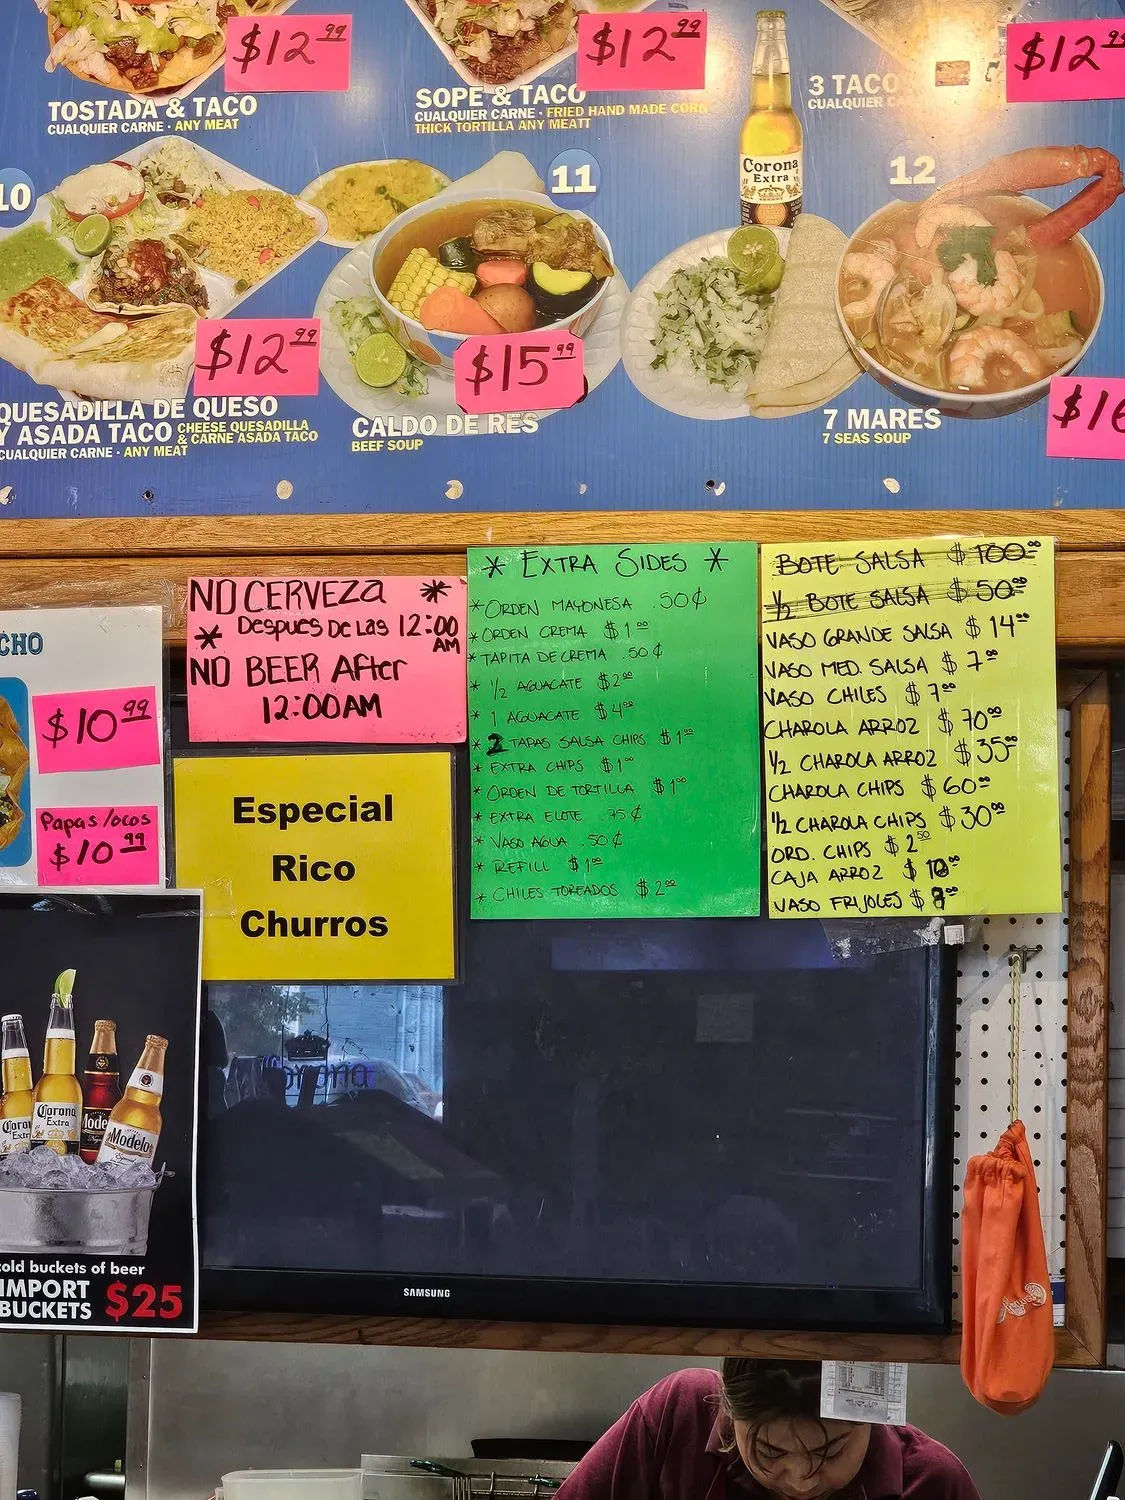 $12.99
$12.99
$12.9
TOSTADA & TACO
CUALQUIER CARNE · ANY MEAT
SOPE & TACO
CUALQUIER CARNE · FRIED HAND MADE CORN
THICK TORTILLA ANY MEATT
3 TACO
CUALQUIER C
Corona
Extra
10
11
12
$12.99
$15.99
$16
QUESADILLA DE QUESO
Y ASADA TACO CHEESE QUESADILLA
& CARNE ASADA TACO
CUALQUIER CARNE · ANY MEAT
CALDO DE RES
BEEF SOUP
7 MARES
7 SEAS SOUP
CHO
$10.99
Papas locos
$10.99
NO CERVEZA *
* DESPUES DE LAS 12:00 AM
NO BEER After
12:00AM
Especial
Rico
Churros
* EXTRA SIDES *
* ORDEN MAYONESA .50¢
* ORDEN CREMA $1.00
* TAPITA DE CREMA .50¢
* 1/2 AGUACATE $2.00
* 1 AGUACATE $4.00
* 2 TAPAS SALSA CHIPS $1.00
* EXTRA CHIPS $1.00
* ORDEN DE TORTILLA $1.00
* EXTRA ELOTE .75¢
* VASO AGUA .50¢
* REFILL $1.00
* CHILES TOREADOS $2.00
BOTE SALSA $100.00
1/2 BOTE SALSA $50.00
VASO GRANDE SALSA $14.00
VASO MED. SALSA $7.00
VASO CHILES $7.00
CHAROLA ARROZ $70.00
1/2 CHAROLA ARROZ $35.00
CHAROLA CHIPS $60.00
1/2 CHAROLA CHIPS $30.00
ORD. CHIPS $2.50
CAJA ARROZ $10.00
VASO FRIJOLES $
Corona
Extra
Modelo
cold buckets of beer
IMPORT
BUCKETS $25
SAMSUNG